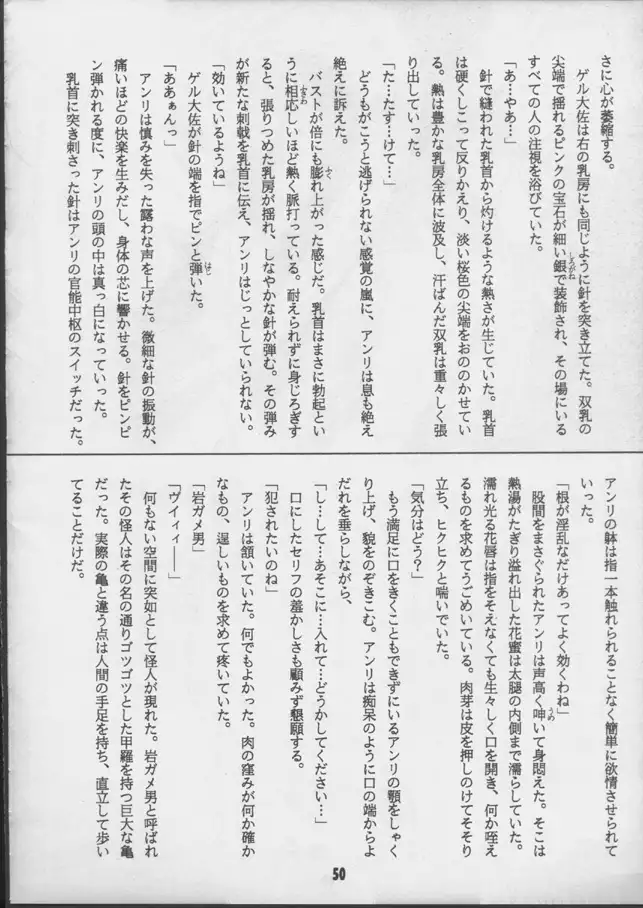 さに心が萎縮する。
ゲル大佐は右の乳房にも同じように針を突き立てた。双乳の
尖端で揺れるピンクの宝石が細い銀で装飾され、その場にいる
すべての人の注視を浴びていた。
「あ…やあ…」
針で縫われた乳首から灼けるような熱さが生じていた。乳首
は硬くしこって反りかえり、淡い桜色の尖端をおののかせてい
る。熱は豊かな乳房全体に波及し、汗ばんだ双乳は重々しく張
り出していった。
「た…たす…けて…」
どうもがこうと逃げられない感覚の嵐に、アンリは息も絶え
絶えに訴えた。
バストが倍にも膨れ上がった感じだ。乳首はまさに勃起とい
うに相応しいほど熱く脈打っている。耐えられずに身じろぎす
ると、張りつめた乳房が揺れ、しなやかな針が弾む。その弾み
が新たな刺戟を乳首に伝え、アンリはじっとしていられない。
「効いているようね」
ゲル大佐が針の端を指でピンと弾いた。
「ああぁんっ」
アンリは慎みを失った露わな声を上げた。微細な針の振動が、
痛いほどの快楽を生みだし、身体の芯に響かせる。針をピンピ
ン弾かれる度に、アンリの頭の中は真っ白になっていった。
乳首に突き刺さった針はアンリの官能中枢のスイッチだった。
アンリの躰は指一本触れられることなく簡単に欲情させられて
いった。
「根が淫乱なだけあってよく効くわね」
股間をまさぐられたアンリは声高く呻いて身悶えた。そこは
熱湯がたぎり溢れ出した花蜜は太腿の内側まで濡らしていた。
濡れ光る花唇は指をそえなくても生々しく口を開き、何か咥え
るものを求めてうごめいている。肉芽は皮を押しのけてそそり
立ち、ヒクヒクと喘いでいた。
「気分はどう？」
もう満足に口をきくこともできずにいるアンリの顎をしゃく
り上げ、貌をのぞきこむ。アンリは痴呆のように口の端からよ
だれを垂らしながら、
「し…して…あそこに…入れて…どうかしてください…」
口にしたセリフの羞かしさも顧みず懇願する。
「犯されたいのね」
アンリは頷いていた。何でもよかった。肉の窪みが何か確か
なもの、逞しいものを求めて疼いていた。
「岩ガメ男」
「ヴイィィ――」
何もない空間に突如として怪人が現れた。岩ガメ男と呼ばれ
たその怪人はその名の通りゴツゴツとした甲羅を持つ巨大な亀
だった。実際の亀と違う点は人間の手足を持ち、直立して歩い
てることだけだ。
50